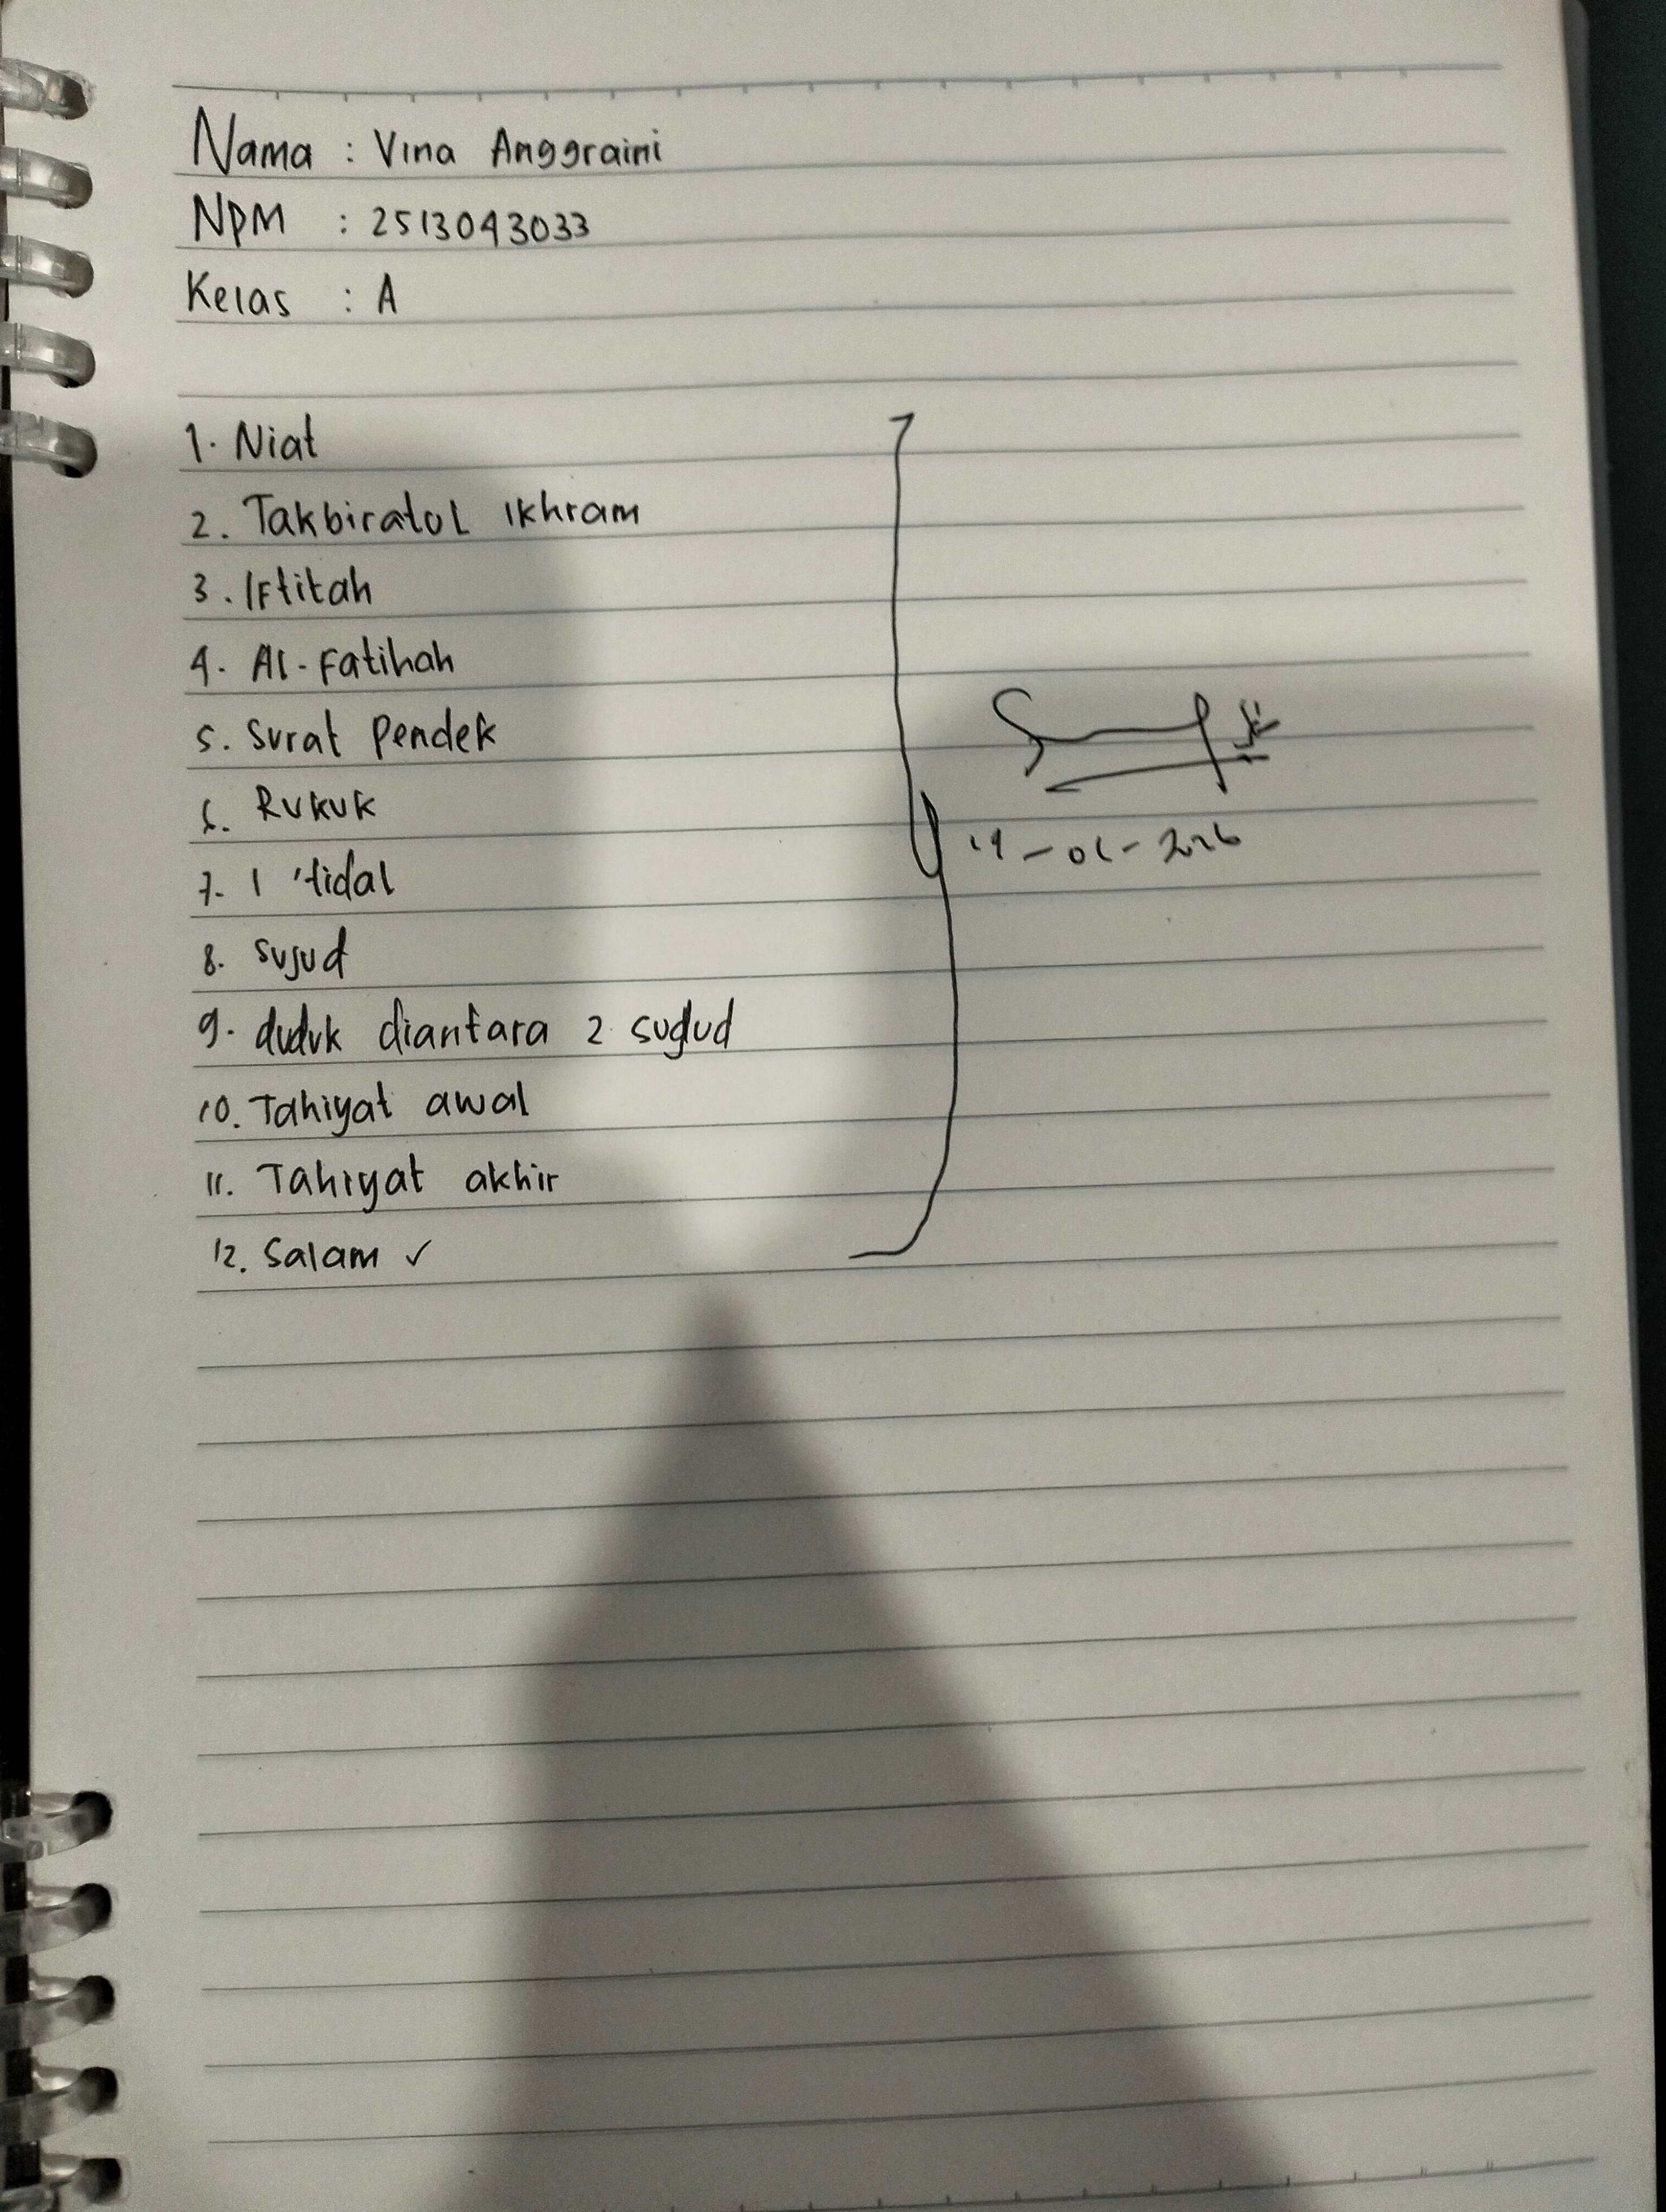 Nama : Vina Anggraini
NPM : 2513043033
Kelas : A
1. Niat
2. Takbiratul ikhram
3. Iftitah
4. Al-Fatihah
5. Surat Pendek
6. Rukuk
7. I 'tidal
8. sujud
9. duduk diantara 2 sujud
10. Tahiyat awal
11. Tahiyat akhir
12. Salam ✓